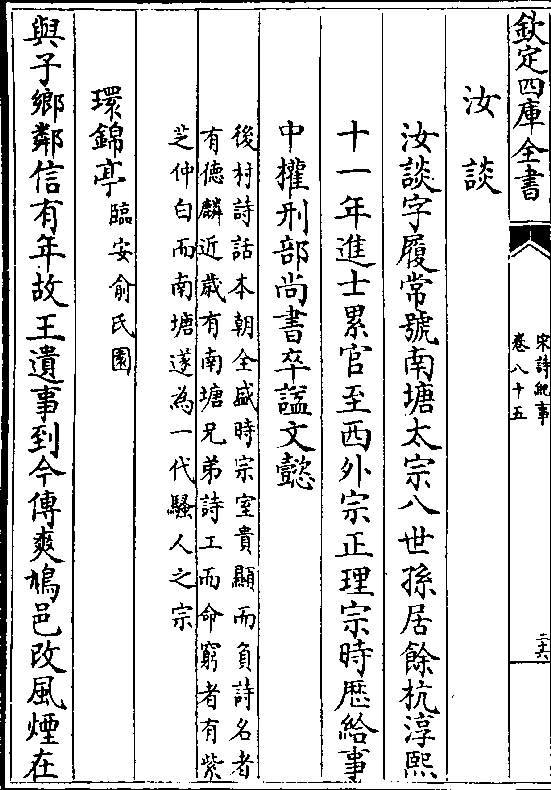 欽定四庫全書
宋詩紀事
卷八十五
二六
汝談
汝談字履常號南塘太宗八世孫居餘杭淳熙
十一年進士累官至西外宗正理宗時歴給事
中權刑部尚書卒諡文懿
後村詩話本朝全盛時宗室貴顯而負詩名者
有德麟近歲有南塘兄弟詩工而命窮者有紫
芝仲白而南塘遂為一代騷人之宗
環錦亭臨安俞氏園
與子鄉鄰信有年故王遺事到今傳爽鳩邑改風煙在